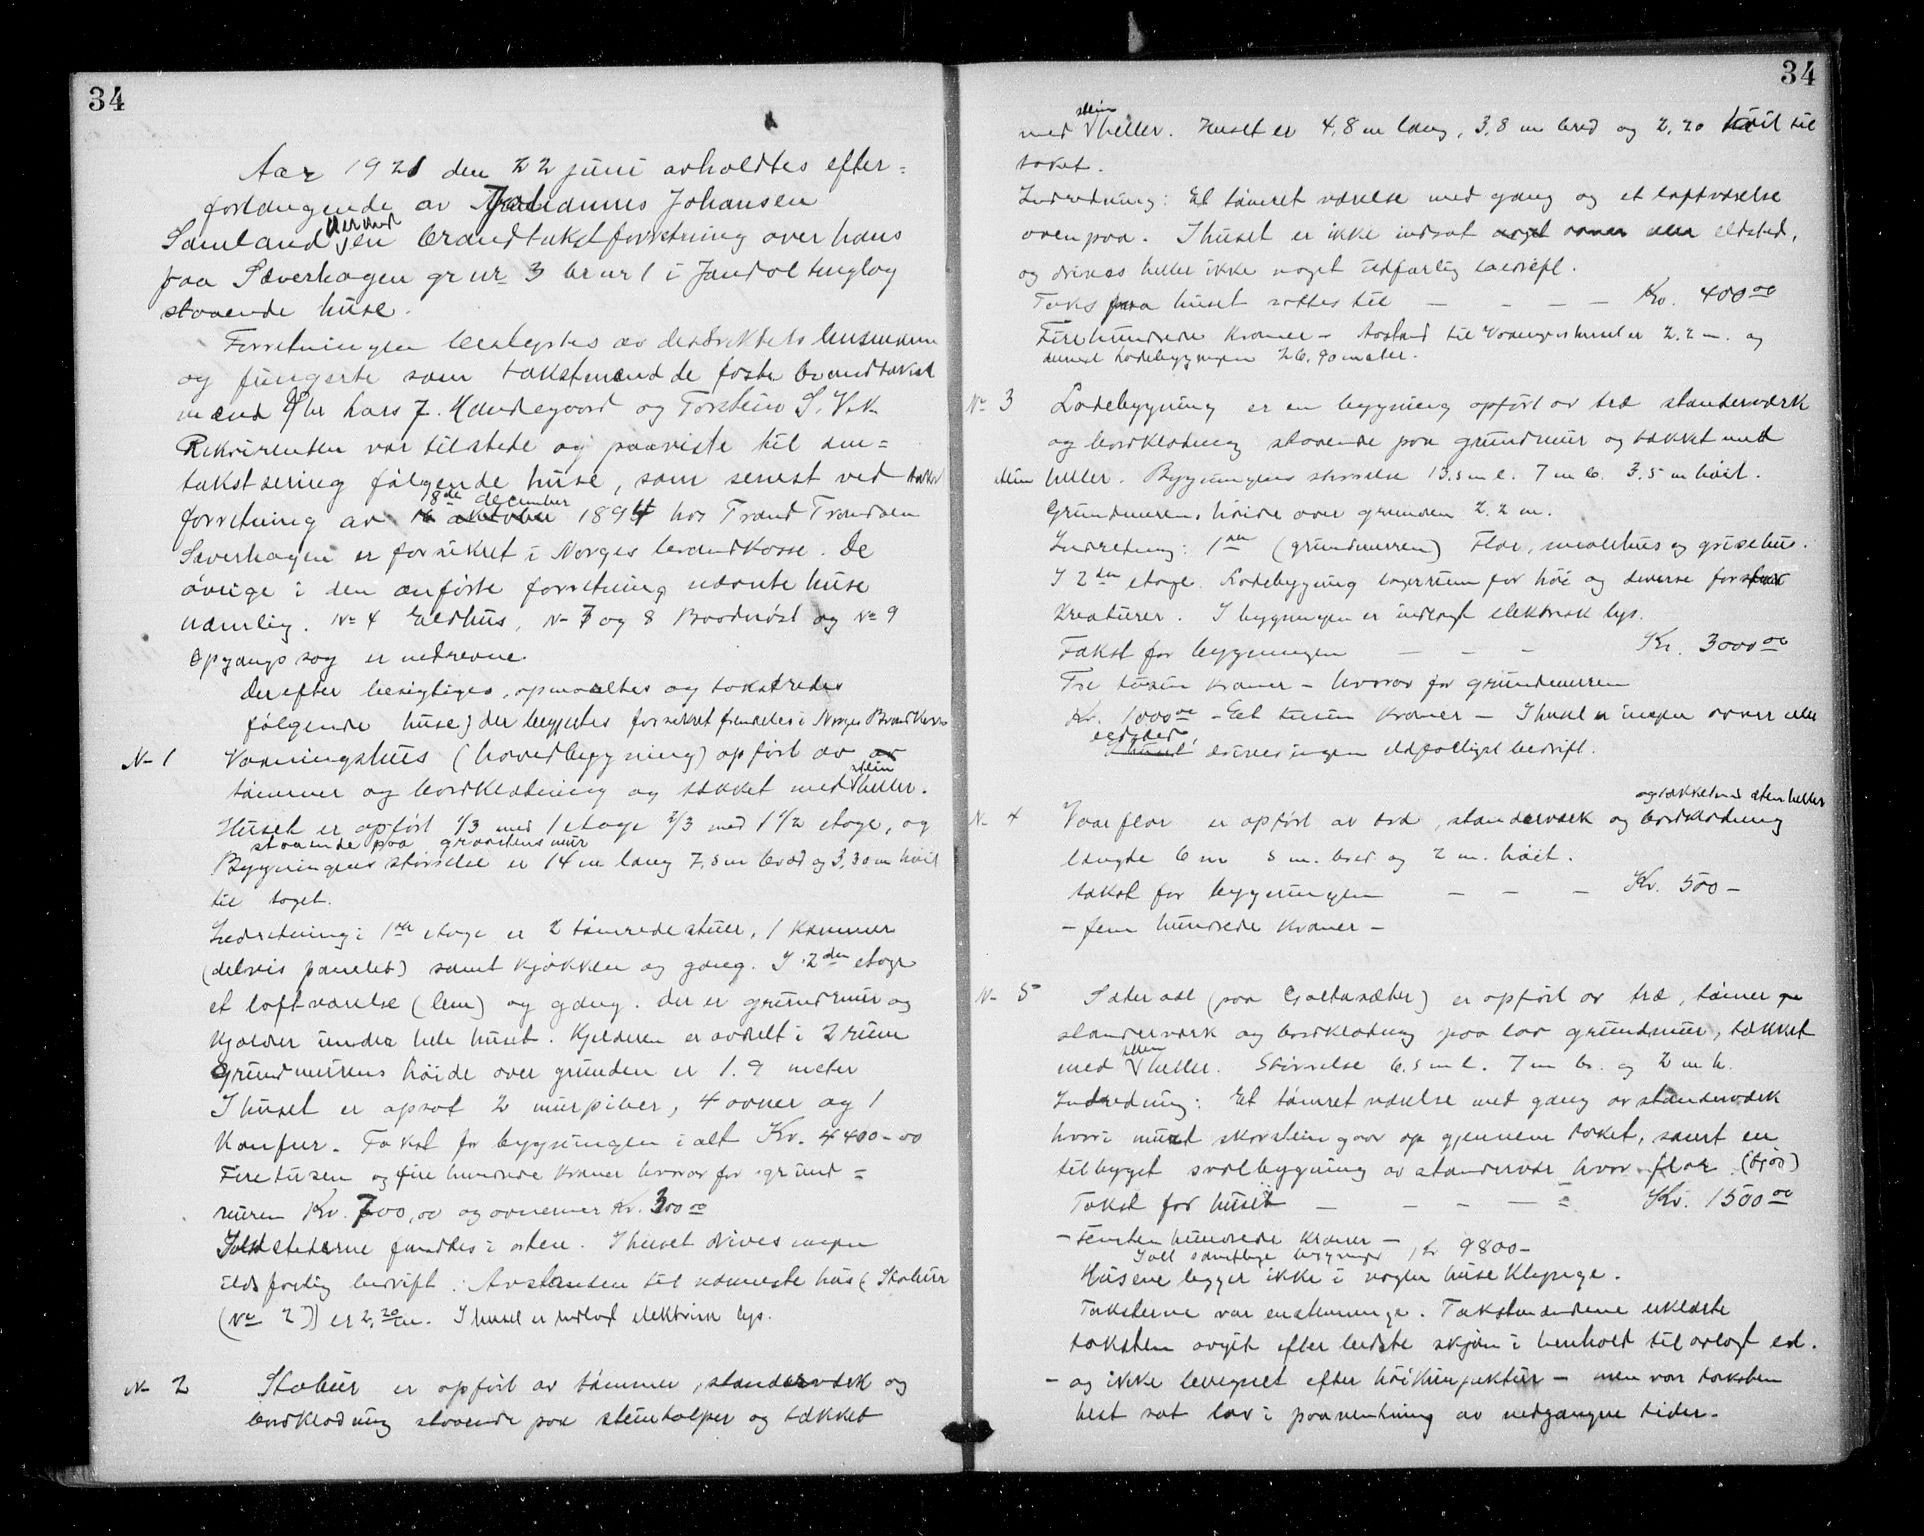 34
Aar 1921 den 22 juni avholdtes efter=
forlangende av Johannes Johansen
Samland Herved en brandtakstforretning over hans
paa Sæverhagen gr nr 3 br nr 1 i Jondal tinglag
staaende huse.
Forretningen bestyrtes av destriktets lensmann
og fungerte som takstmænd de faste brandtakst
mænd Lars J. Handegaard og Torstein S. Vik
Rekvirenten var tilstede og paaviste til om=
taksering følgende huse, som senest ved takst
forretning av 8de december 1894 hos Trond Trondsen
Sæverhagen er forsikret i Norges brandkasse. De
øvrige i den anførte forretning nævnte huse
nemlig. No 4 Eldhus, No 7 og 8 Baadnøst og No 9
Opgangssag er nedrevne.
Derefter besigtiges, opmaaltes og takseredes
følgende huse, der begjertes forsikret fremdeles i Norges Brandkasse
No 1 Vaaningshus (hovedbygning) opført av
tømmer og bordklædning og tækket med
stein
heller.
Huset er opført 1/3 med 1 etage 2/3 med 1 1/2 etage, og
staaende paa graastens mur
Bygningens størrelse er 14 m lang 7,5 m bred og 3,30 m høit
til taget.
Indretning: 1ste etage er 2 tømrede stuer, 1 kammer
(delvis panelet) samt kjøkken og gang. I 2den etage
et loftværelse (lem) og gang. Der er grundmur og
kjælder under hele huset. Kjelderen er avdelt i 2 rum
Grundmurens høide over grunden er 1.9 meter
I huset er opsat 2 murpiber, 4 ovner og 1
Komfur. Takst for bygningen i alt Kr. 4400-00
Fire tusen og fire hundrede kroner hvorav for grund=
muren Kr. 700,00 og ovnerne Kr. 300 00
Ildstederne fandtes i orden. I huset drives ingen
ildsfarlig bedrift. Avstanden til nærmeste hus (Stabur
(No 2)) er 2,20 m. I huset er indlagt elektrisk lys.
No 2 Stabur er opført av tømmer, standerværk og
bordklædning staaende paa steinstolper og tækket
34
stein
med heller. Huset er 4,8 m lang, 3,8 m bred og 2,20 høit til
taket.
Indredning: Et tømret værelse med gang og et loftværelse
ovenpaa. I huset er ikke indsat noget ovner eller eldsted,
og drives heller ikke noget ildfarlig bedrift.
Takst paa huset sættes til — — — — Kr. 400 00
Firehundrede Kroner – Avstand til Vaaningshuset er 2.2 m. og
dernest Ladebygningen 26,90 meter.
No 3 Ladebygning er en bygning opført av træ standerværk
og bordklædning staaende paa grundmur og tækket med
stein heller. Bygningens størrelse 13.5 m l. 7 m b. 3.5 m høit.
Grundmurens høide over grunden 2.2 m.
Indretning: 1ste (grundmuren) Flor, smalehus og grisehus.
I 2den etage. Ladebygning lagerrum for høi og diverse for
Kreaturer. I bygningen er indlagt elektrisk lys.
Takst for bygningen — — — Kr. 3000 00
Tre tusen kroner – hvorav for grundmuren
Kr. 1000 00 – Eet tusen kroner – I huset er ingen ovner eller
ildsteder
I huset drives ingen ildfarligst bedrift.
og tækket med stenheller
No 4 Vaarflor er opført av træ, standerværk og bordklædning
længde 6 m 5 m. bred og 2 m. høit.
takst for bygningen — — — Kr. 500 –
– fem hundrede kroner –
No 5 Sæter sel (paa sæter) er opført av træ, tømer og
standerværk og bordklædning paa lav grundmur, tækket
stein
med heller. Størrelse 6.5 m l. 7 m b. og 2 m h.
Indredning: Et tømret værelse med gang av standerværk
hvori muret skorstein gaar op gjennem taket, samt en
tilbygget svalbygning av standerværk hvor flor (fjøs)
Takst for huset — — — — Kr. 1500 00
– Femten hundrede kroner –
I alt samtlige bygninger, kr 9800 –
Husene ligger ikke i nogen huseklynge.
Taksterne var enstemmige. Takstmændene erklærte
taksten avgit efter bedste skjøn i henhold til avlagt ed.
– og ikke beregnet efter høikonjunktur – men var taksten
helst sat lav i paaventning av nedgangne tider.